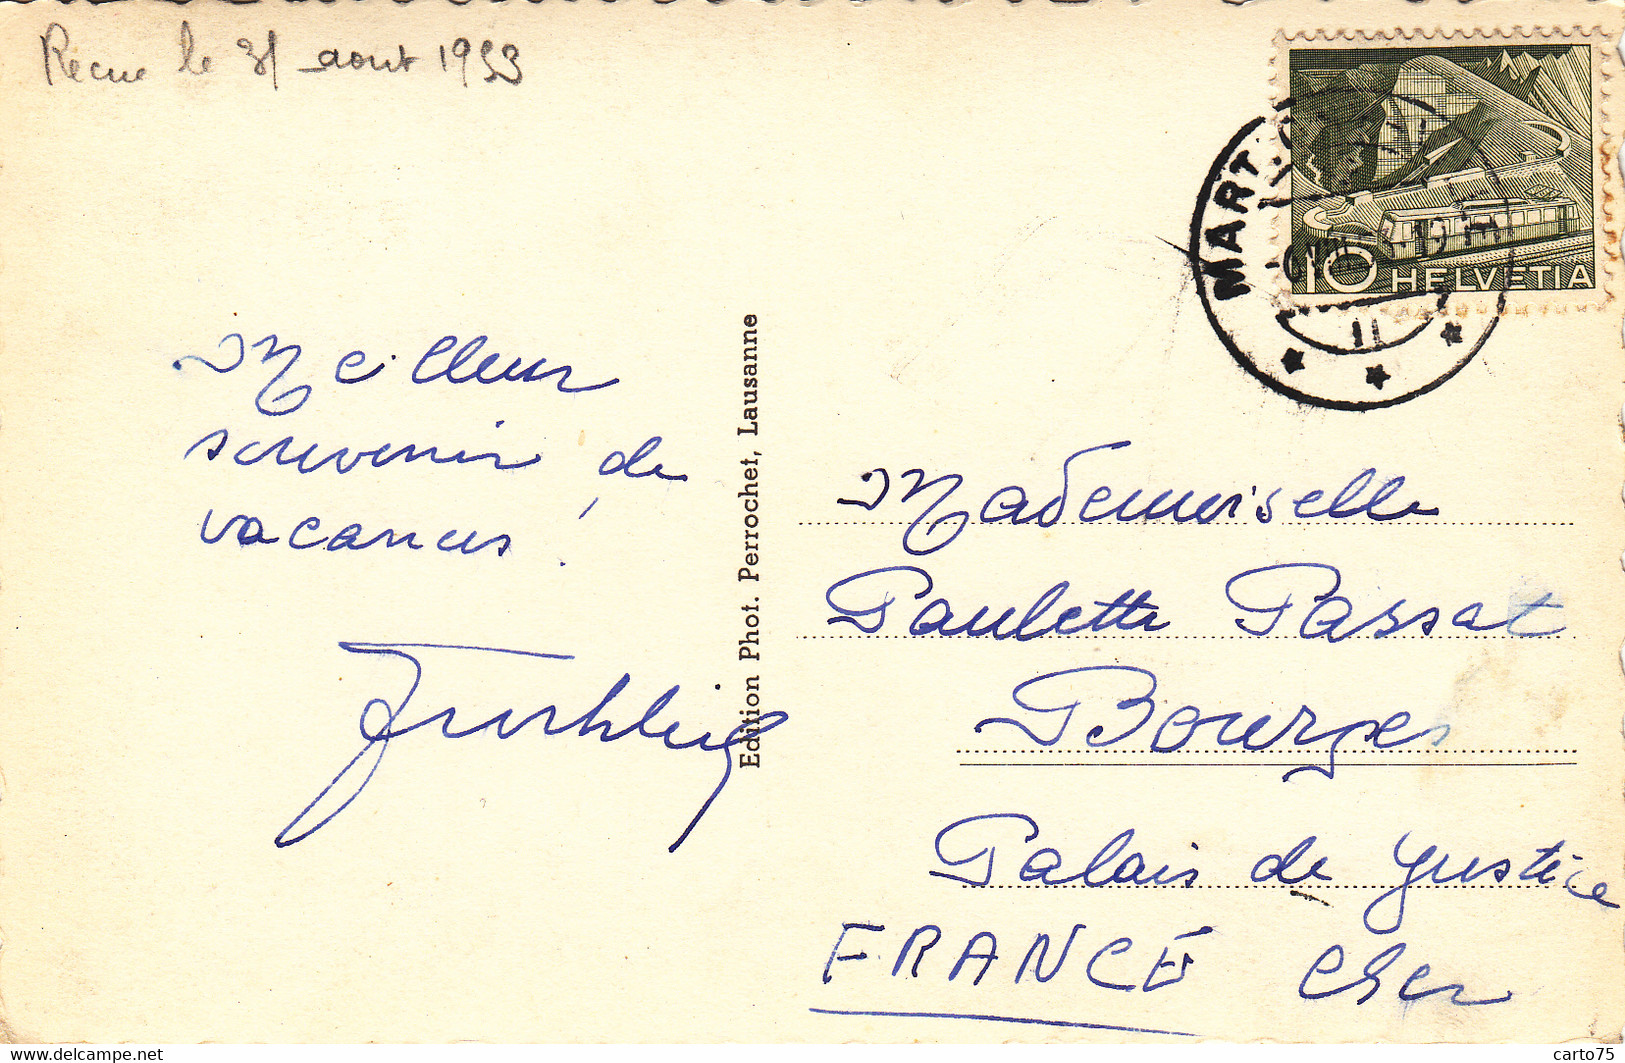 Recue le 31 aout 1953
MART
10 HELVETIA
11
Meilleur
souvenir de
vacances !
Edition Phot. Perrochet, Lausanne
Mademoiselle
Paulette Passat
Bourges
Palais de Justice
FRANCE Cher
www.delcampe.net
carto75